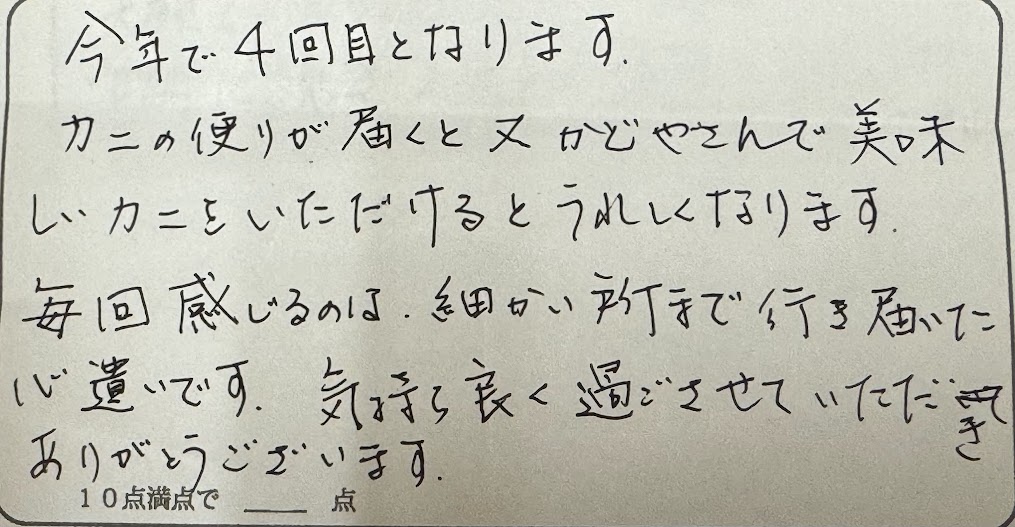 今年で4回目となります.
カニの便りが届くと又かどやさんで美味
しいカニをいただけるとうれしくなります.
毎回感じるのは.細かい所まで行き届いた
心遣いです.気持ち良く過ごさせていただき
ありがとうございます.
10点満点で ____ 点